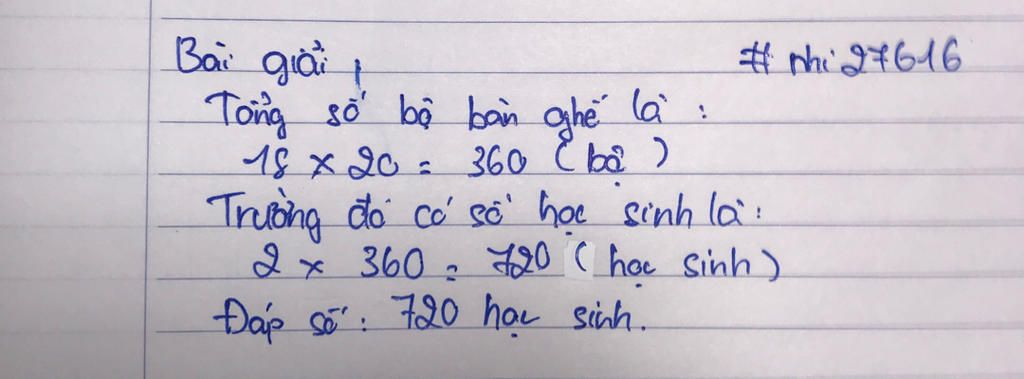 Bài giải, # nhi 27616
Tổng số bộ bàn ghế là :
18 x 20 = 360 ( bộ )
Trường đó có số học sinh là :
2 x 360 = 720 ( học sinh )
Đáp số : 720 học sinh.